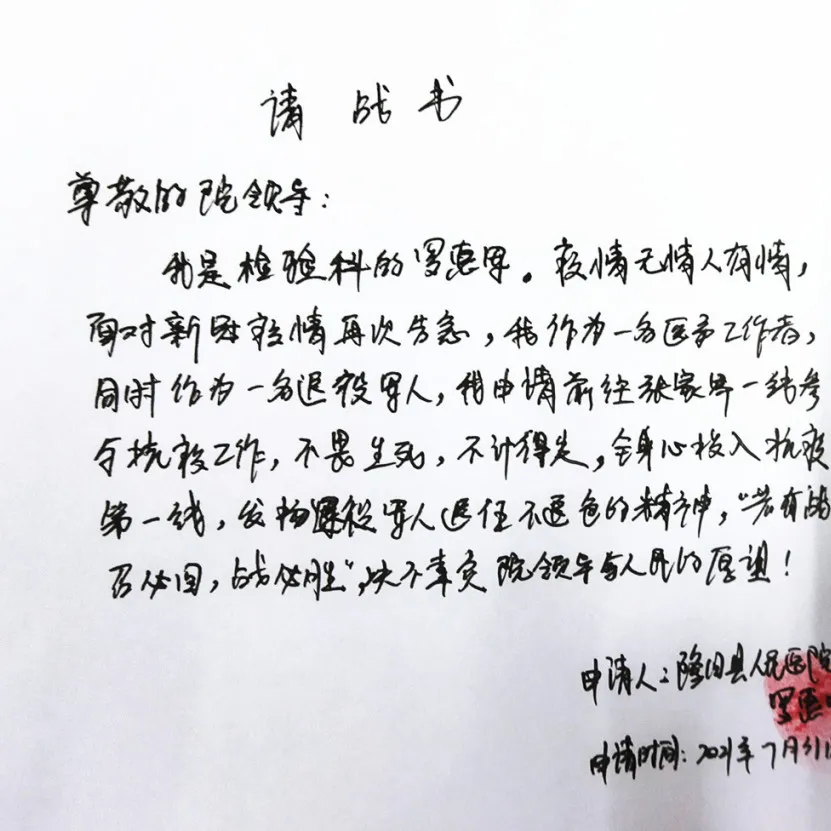 请战书
尊敬的院领导：
我是检验科的罗惠。疫情无情人有情，
面对新冠疫情再次告急，我作为一名医务工作者，
同时作为一名退役军人，我申请前往张家界一线参
与抗疫工作，不畏生死，不计得失，全身心投入抗疫
第一线，发扬退役军人退伍不退色的精神，“若有战
召必回，战必胜”，决不辜负院领导与人民的厚望！
申请人：隆回县人民医院
罗惠
申请时间：2021年7月31日